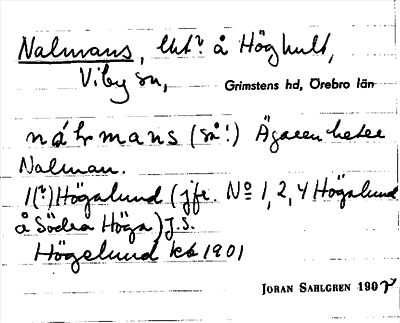 Nalmans, lht? å Höghult,
Viby sn, Grimstens hd, Örebro län
nálmans (så!) Ägaren heter
Nalman.
1(?) Högalund (jfr. No 1, 2, 4 Högalund
å Södra Höga) J.S.
Högelund kb 1901
JORAN SAHLGREN 190